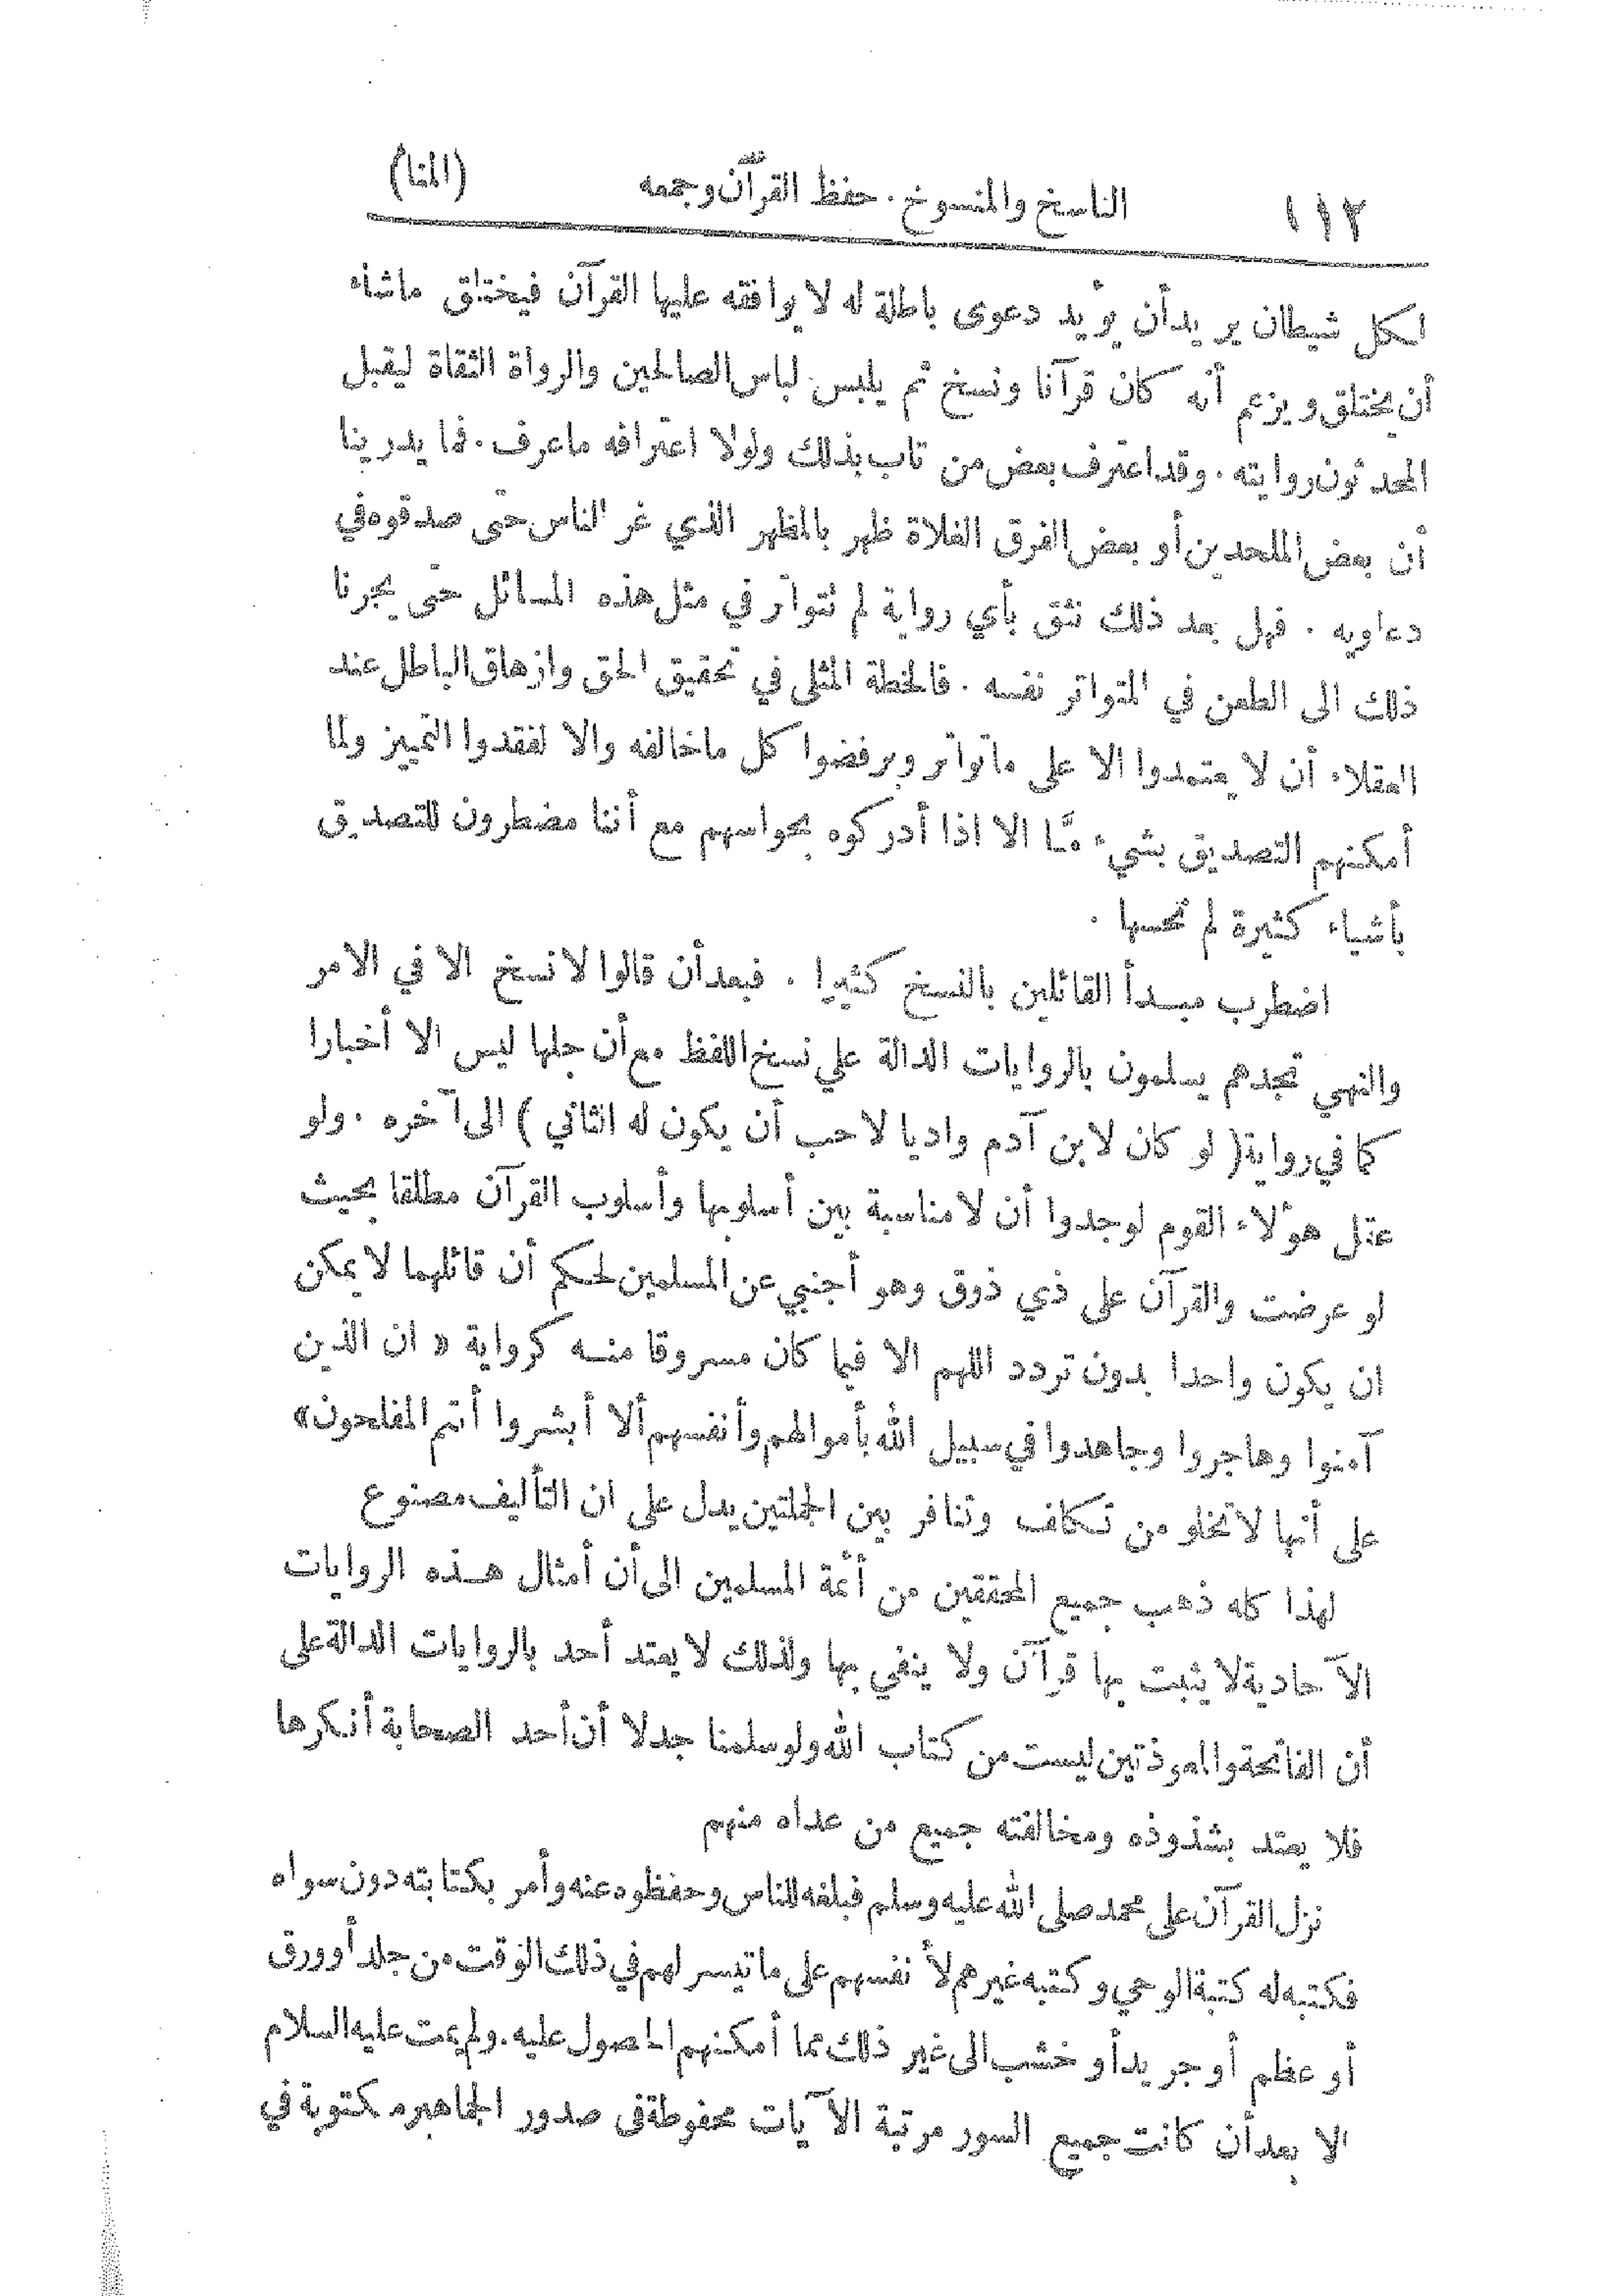 ١١٢ الناسخ والمنسوخ . حفظ القرآن وجمعه (المنا)
لكل شيطان يريد أن يؤيد دعوى باطلة له لا يوافقه عليها القرآن فيختلق ماشاء
أن يختلق ويزعم أنه كان قرآنا ونسخ ثم يلبس لباس الصالحين والرواة الثقاة ليقبل
المحدثون روايته . وقد اعترف بعض من تاب بذلك ولولا اعترافه ماعرف . فما يدرينا
أن بعض الملحدين أو بعض الفرق الغلاة ظهر بالمظهر الذي غر الناس حتى صدقوه في
دعاويه . فهل بعد ذلك نثق بأي رواية لم تتواتر في مثل هذه المسائل حتى يجرنا
ذلك الى الطعن في المتواتر نفسه . فالخطة المثلى في تحقيق الحق وازهاق الباطل عند
العقلاء أن لا يعتمدوا الا على ماتواتر ويرفضوا كل ماخالفه والا لفقدوا التمييز ولما
أمكنهم التصديق بشيء مّا الا اذا أدركوه بحواسهم مع أننا مضطرون للتصديق
بأشياء كثيرة لم نحسها .
اضطرب مبدأ القائلين بالنسخ كثيرا . فبعد أن قالوا لا نسخ الا في الامر
والنهي تجدهم يسلمون بالروايات الدالة على نسخ اللفظ مع أن جلها ليس الا أخبارا
كما في رواية ( لو كان لابن آدم واديا لاحب أن يكون له الثاني ) الى آخره . ولو
عقل هؤلاء القوم لوجدوا أن لا مناسبة بين أسلوبها وأسلوب القرآن مطلقا بحيث
لو عرضت والقرآن على ذي ذوق وهو أجنبي عن المسلمين لحكم أن قائلهما لا يمكن
ان يكون واحدا بدون تردد اللهم الا فيما كان مسروقا منه كرواية « ان الذين
آمنوا وهاجروا وجاهدوا في سبيل الله بأموالهم وأنفسهم ألا أبشروا أنتم المفلحون »
على أنها لا تخلو من تكلف وتنافر بين الجملتين يدل على ان التأليف مصنوع
لهذا كله ذهب جميع المحققين من أئمة المسلمين الى أن أمثال هذه الروايات
الآحادية لا يثبت بها قرآن ولا ينفي بها ولذلك لا يعتد أحد بالروايات الدالة على
أن الفاتحة والمعوذتين ليست من كتاب الله ولو سلمنا جدلا أن أحد الصحابة أنكرها
فلا يعتد بشذوذه ومخالفته جميع من عداه منهم
نزل القرآن على محمد صلى الله عليه وسلم فبلغه للناس وحفظوه عنه وأمر بكتابته دون سواه
فكتبه له كتبة الوحي وكتبه غيرهم لأنفسهم على ما تيسر لهم في ذلك الوقت من جلد أو ورق
أو عظم أو جريد أو خشب الى غير ذلك مما أمكنهم الحصول عليه . ولم يمت عليه السلام
الا بعد أن كانت جميع السور مرتبة الآيات محفوظة في صدور الجماهير مكتوبة في